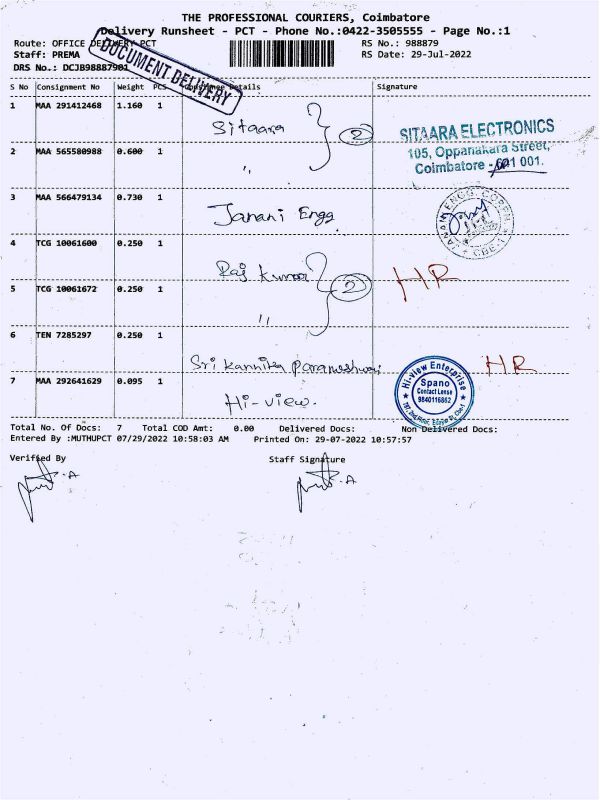 THE PROFESSIONAL COURIERS, Coimbatore
Delivery Runsheet - PCT - Phone No.:0422-3505555 - Page No.:1
Route: OFFICE DELIVERY PCT
RS No.: 988879
Staff: PREMA
RS Date: 29-Jul-2022
DRS No.: DCJB98887901
DOCUMENT DELIVERY
S No Consignment No Weight PCS Consignee Details Signature
1 MAA 291412468 1.160 1 Sitaara
2
SITAARA ELECTRONICS
105, Oppanakara Street,
Coimbatore - 641 001.
2 MAA 565580988 0.600 1 "
3 MAA 566479134 0.730 1 Janani Engg
JANANI ENGG. CORPN.
CBE-1
4 TCG 10061600 0.250 1 Raj Kumar
2
HR
5 TCG 10061672 0.250 1 "
6 TEN 7285297 0.250 1 Sri Kannika Parameshwari
HR
7 MAA 292641629 0.095 1 Hi-view.
Hi-View Enterprise
Spano
Contact Lense
9840116862
Total No. Of Docs: 7 Total COD Amt: 0.00 Delivered Docs: Non Delivered Docs:
Entered By :MUTHUPCT 07/29/2022 10:58:03 AM Printed On: 29-07-2022 10:57:57
Verified By Staff Signature